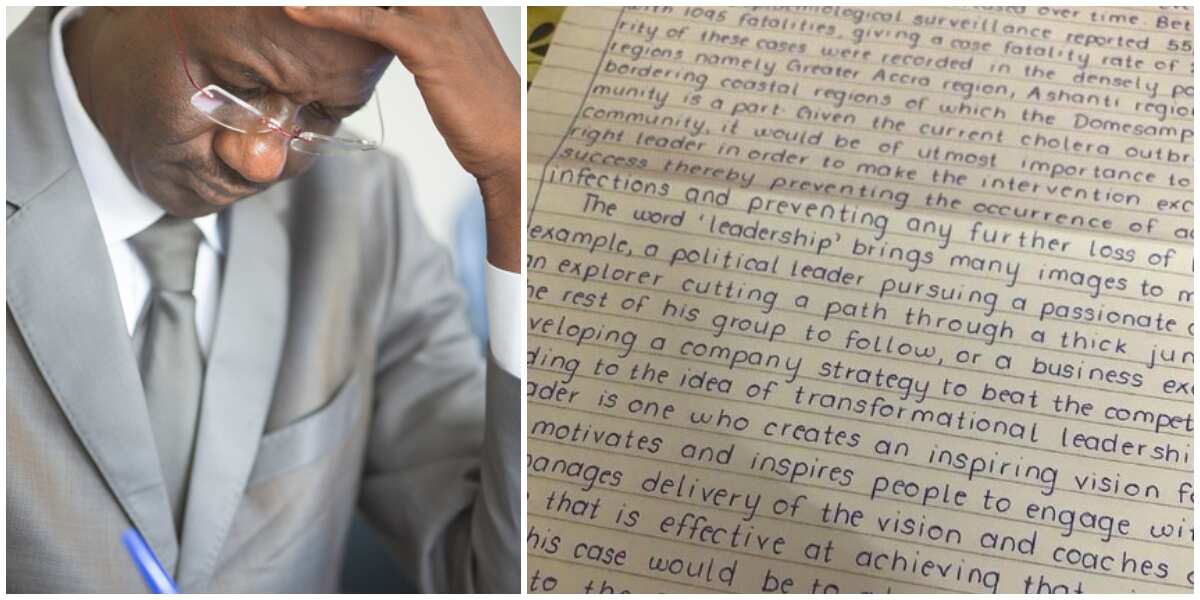 over time. Bet
with 1095 fatalities, giving a case fatality rate of
surveillance reported 55
rity of these cases were recorded in the densely po
regions namely Greater Accra region, Ashanti regio
bordering coastal regions of which the Domesamp
munity is a part. Given the current cholera outbr
community, it would be of utmost importance to
right leader in order to make the intervention exc
success thereby preventing the occurrence of ad
infections and preventing any further loss of
The word 'leadership' brings many images to m
example, a political leader pursuing a passionate
an explorer cutting a path through a thick jun
he rest of his group to follow, or a business exe
veloping a company strategy to beat the compet
ding to the idea of transformational leadershi
ader is one who creates an inspiring vision fo
motivates and inspires people to engage wit
anages delivery of the vision and coaches
that is effective at achieving that
his case would be to
to the